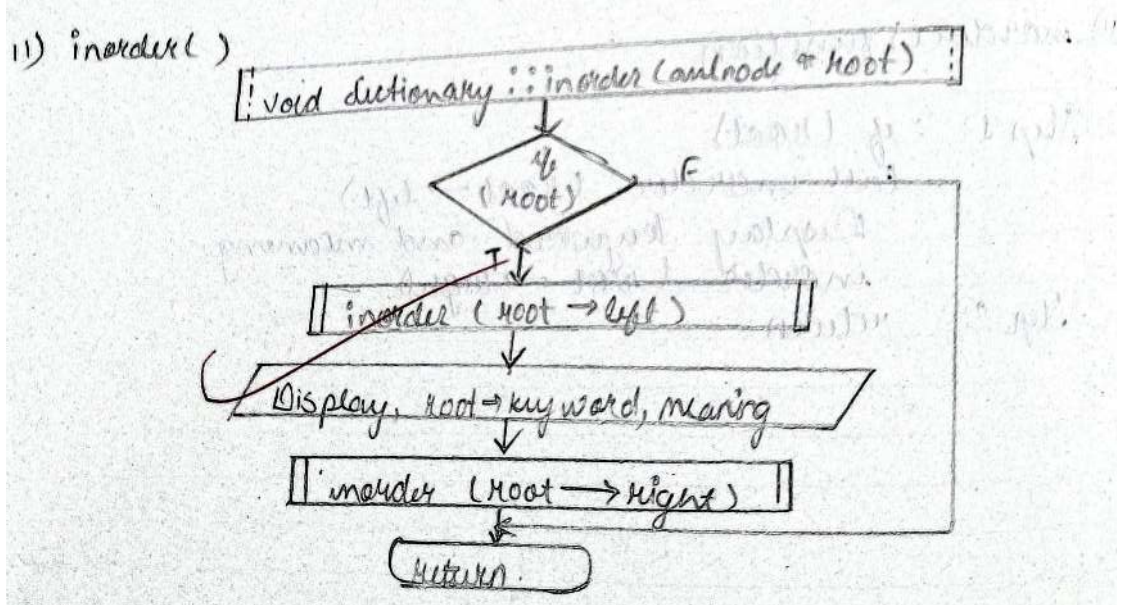 11) inorder( )
void dictionary :: inorder (avlnode * root)
if
(root)
F
T
inorder (root → left)
Display, root → keyword, meaning
inorder (root → right)
return.